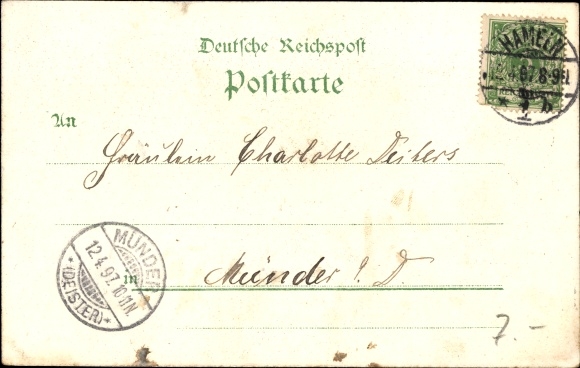 Deutsche Reichspost
Postkarte
HAMELN
12.4.97.8-9N.
* 1 b.
An
Fräulein Charlotte Deiters
MÜNDER
12.4.97.10-11N.
*(DEISTER)*
in
Münder a. D.
7.-